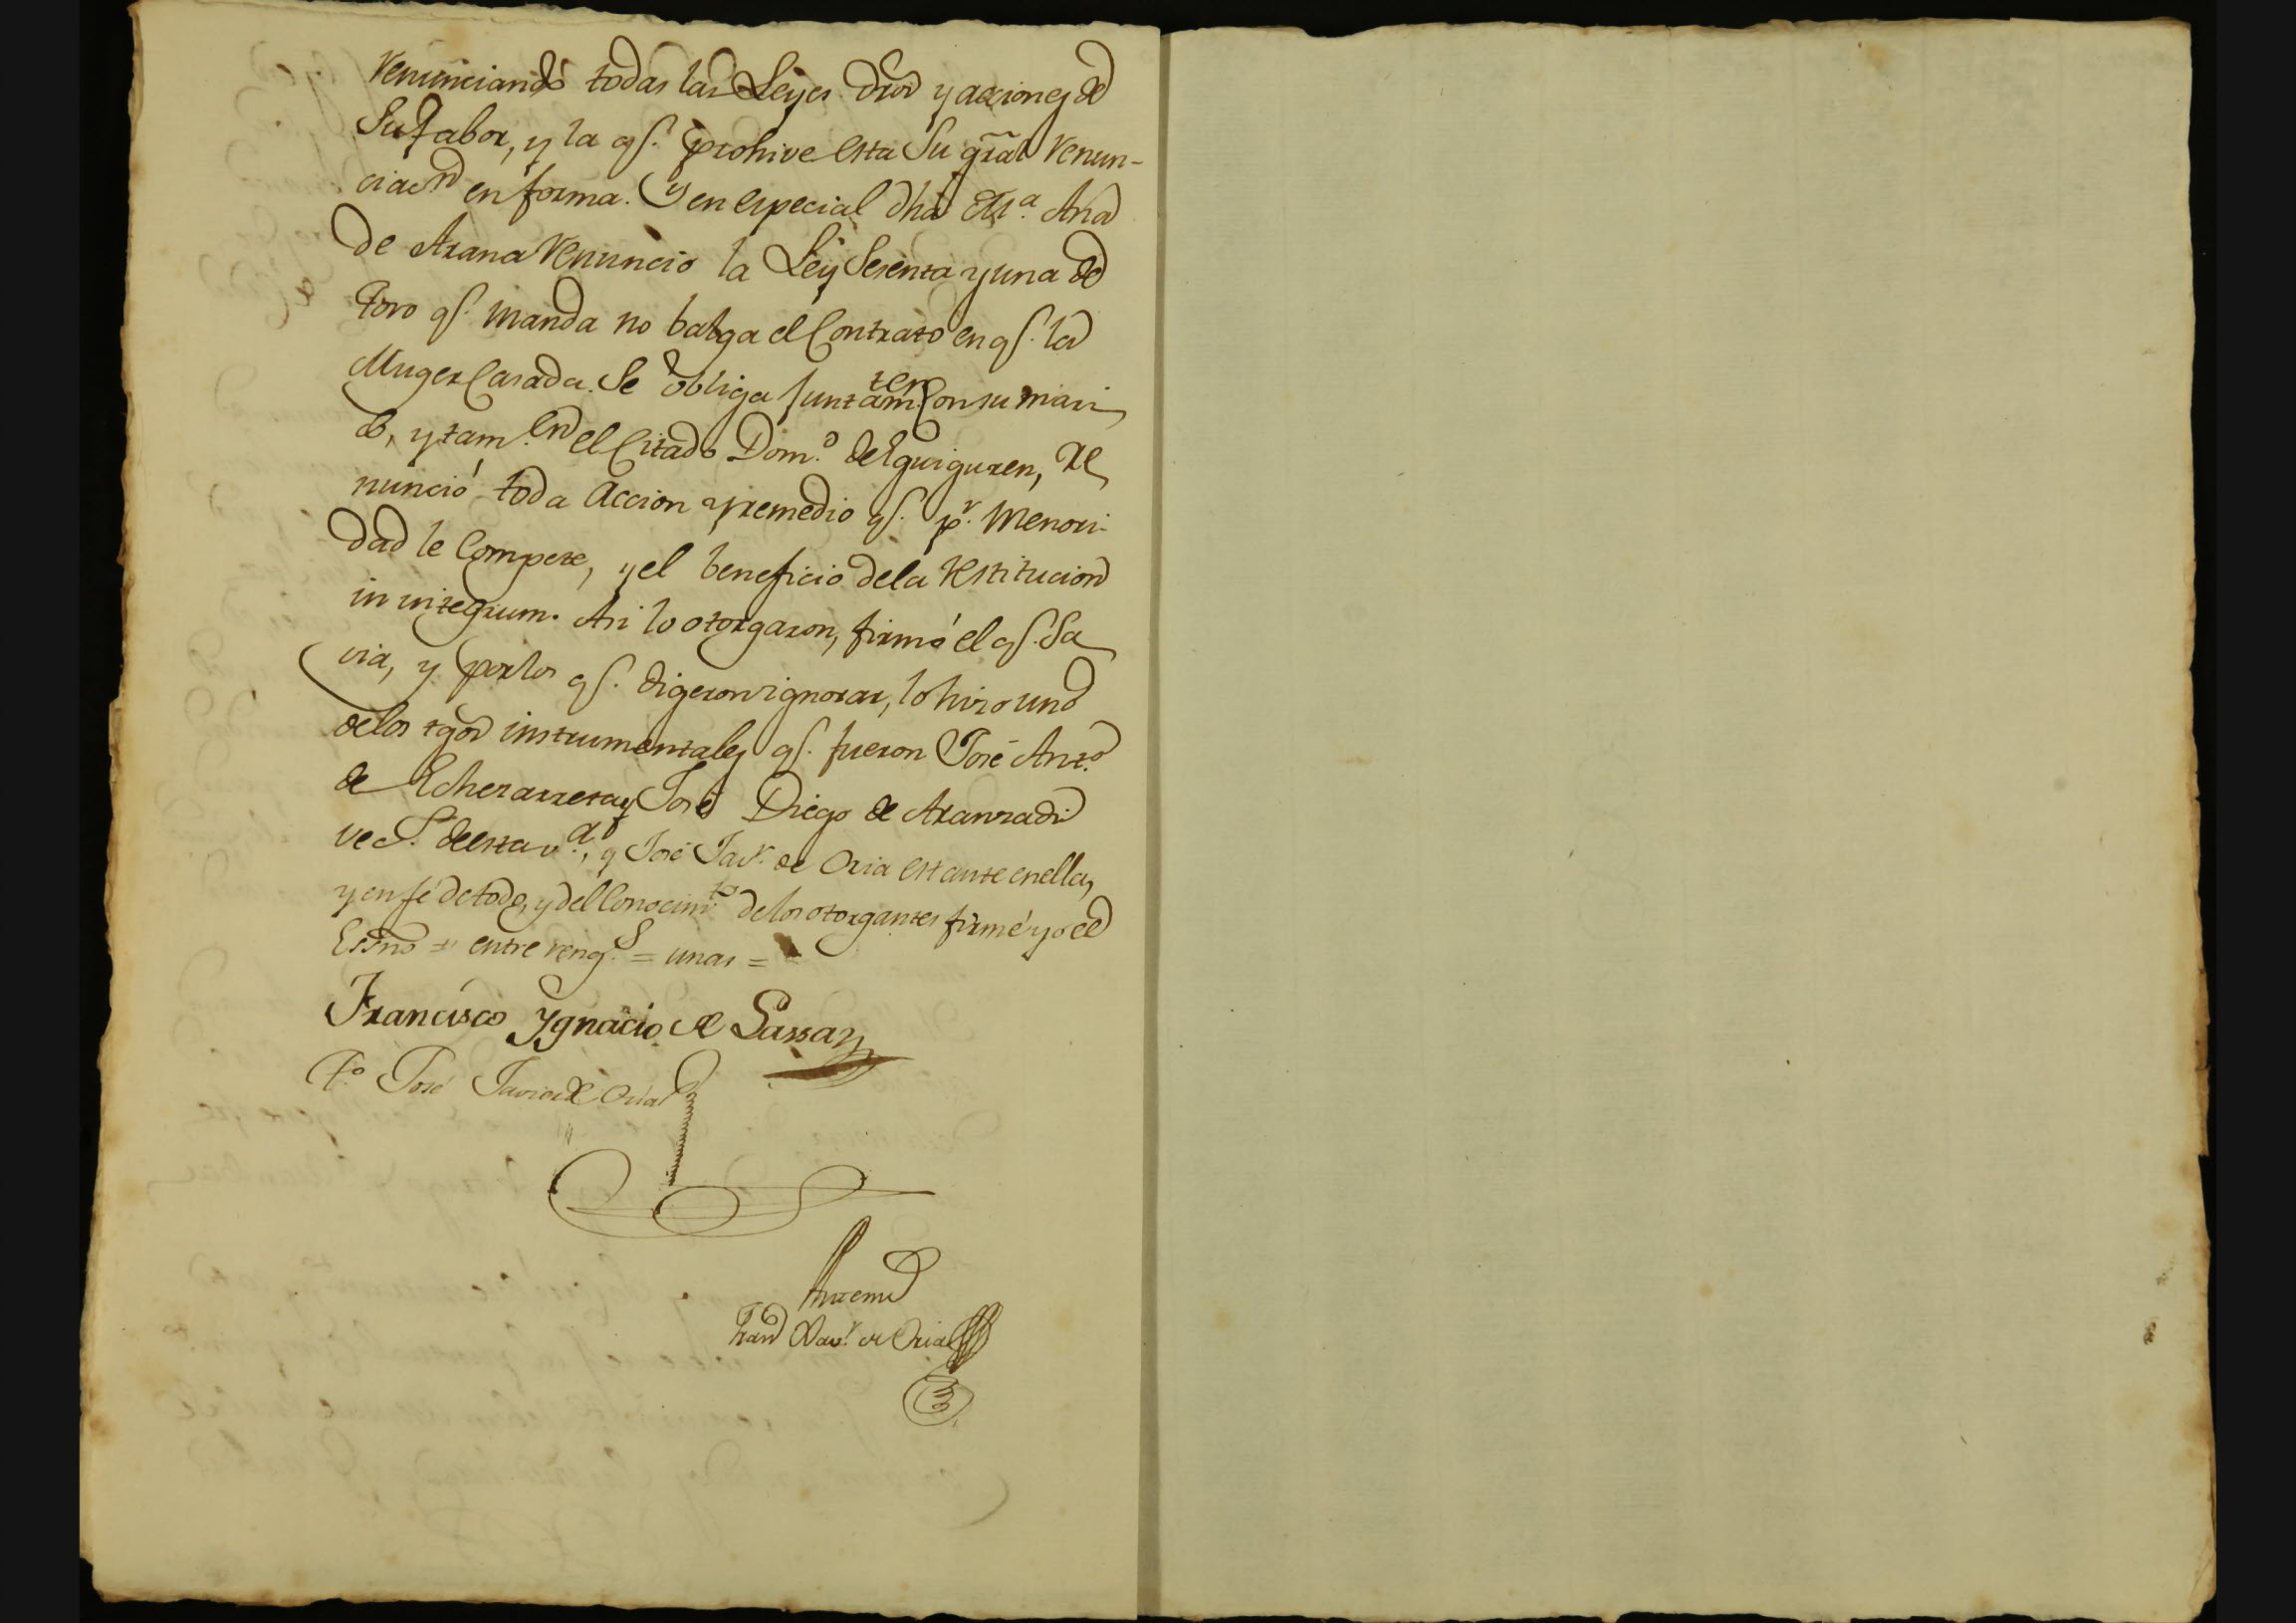 renunciando todas las Leyes dros y acciones de
Su fabor, y la q.e prohive esta Su gral renun-
ciacn en forma. Y en especial dha Ma. Ana
de Arana renuncio la Ley Sesenta y una de
toro q.e manda no balga el Contrato en q.e la
Muger Casada. Se obliga Juntamte. Con su mari
do, y tamen. el Citado Domo. de Eguiguren, re
nunció toda accion y remedio q.e pr. menori-
dad le Compete, y el beneficio de la restitucion
in integrum. Asi lo otorgaron, firmó el q.e sa
via, y por los q.e digeron ignorar, lo hizo uno
de los tgos instrumentales q.e fueron José Anto.
de Echezarreta, y José Diego de Aranzadi
vecs. de esta va., y José Javr. de Oria estante en ella,
y en fé de todo, y del Conocimto. de los otorgantes firmé yo el
Essno = entre rengs. = unas =
Francisco Ygnacio de Lassa
to. José Javier de Oria
Antemi
Fran Xavr. de Oria